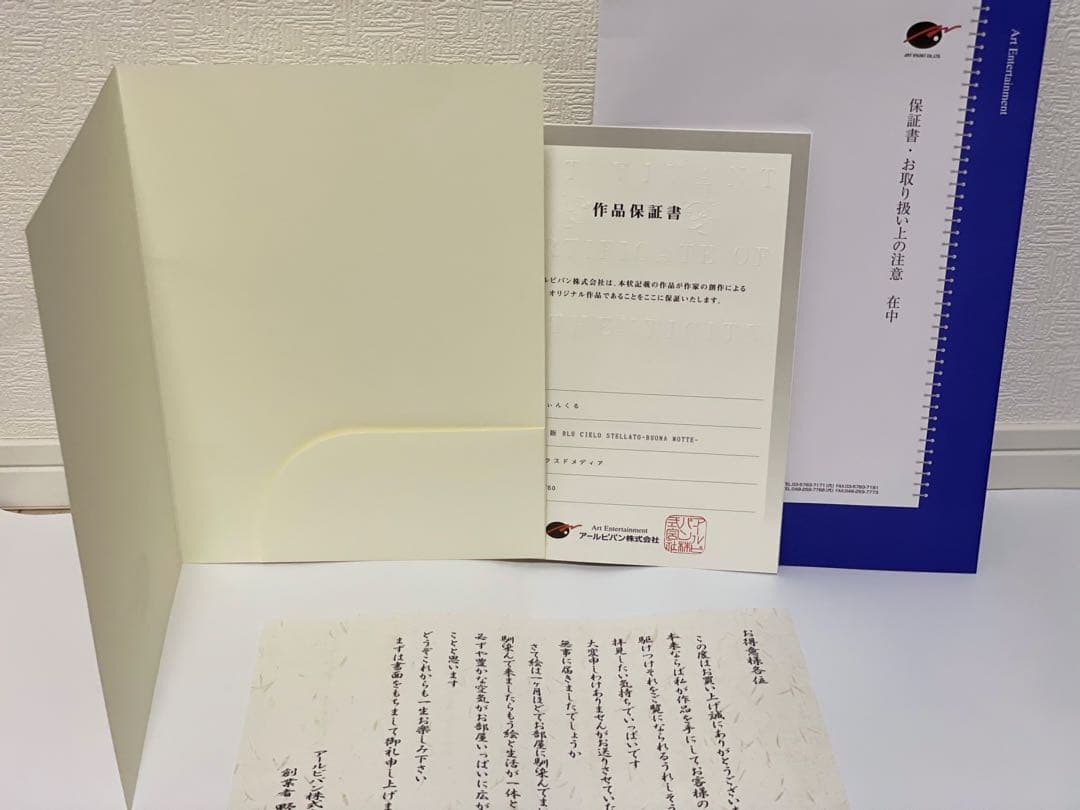 ART VIVANT CO.,LTD.
Art Entertainment
保証書・お取り扱い上の注意 在中
TEL.03-5783-7171(代) FAX.03-5783-7181
TEL.048-259-7768(代) FAX.048-259-7773
作品保証書
ルビバン株式会社は、本状記載の作品が作家の創作による
オリジナル作品であることをここに保証いたします。
ぃんくる
新 BLU CIELO STELLATO-BUONA NOTTE-
クスドメディア
Art Entertainment
アールビバン株式会社
お得意様各位
この度はお買い上げ誠にありがとうござい
本来ならば私が作品を手にしてお客様の
駆けつけそれをご覧になられるうれしそう
拝見したい気持ちでいっぱいです
大変申しわけありませんがお送りさせていた
無事に届きましたでしょうか
さて絵は一ヶ月ほどでお部屋に馴染んでま
馴染んで来ましたらもう絵と生活が一体と
必ずや豊かな空気がお部屋いっぱいに広が
ことと思います
どうぞこれからも一生お楽しみ下さい
まずは書面をもちまして御礼申し上げま
アールビバン株式
創業者 野